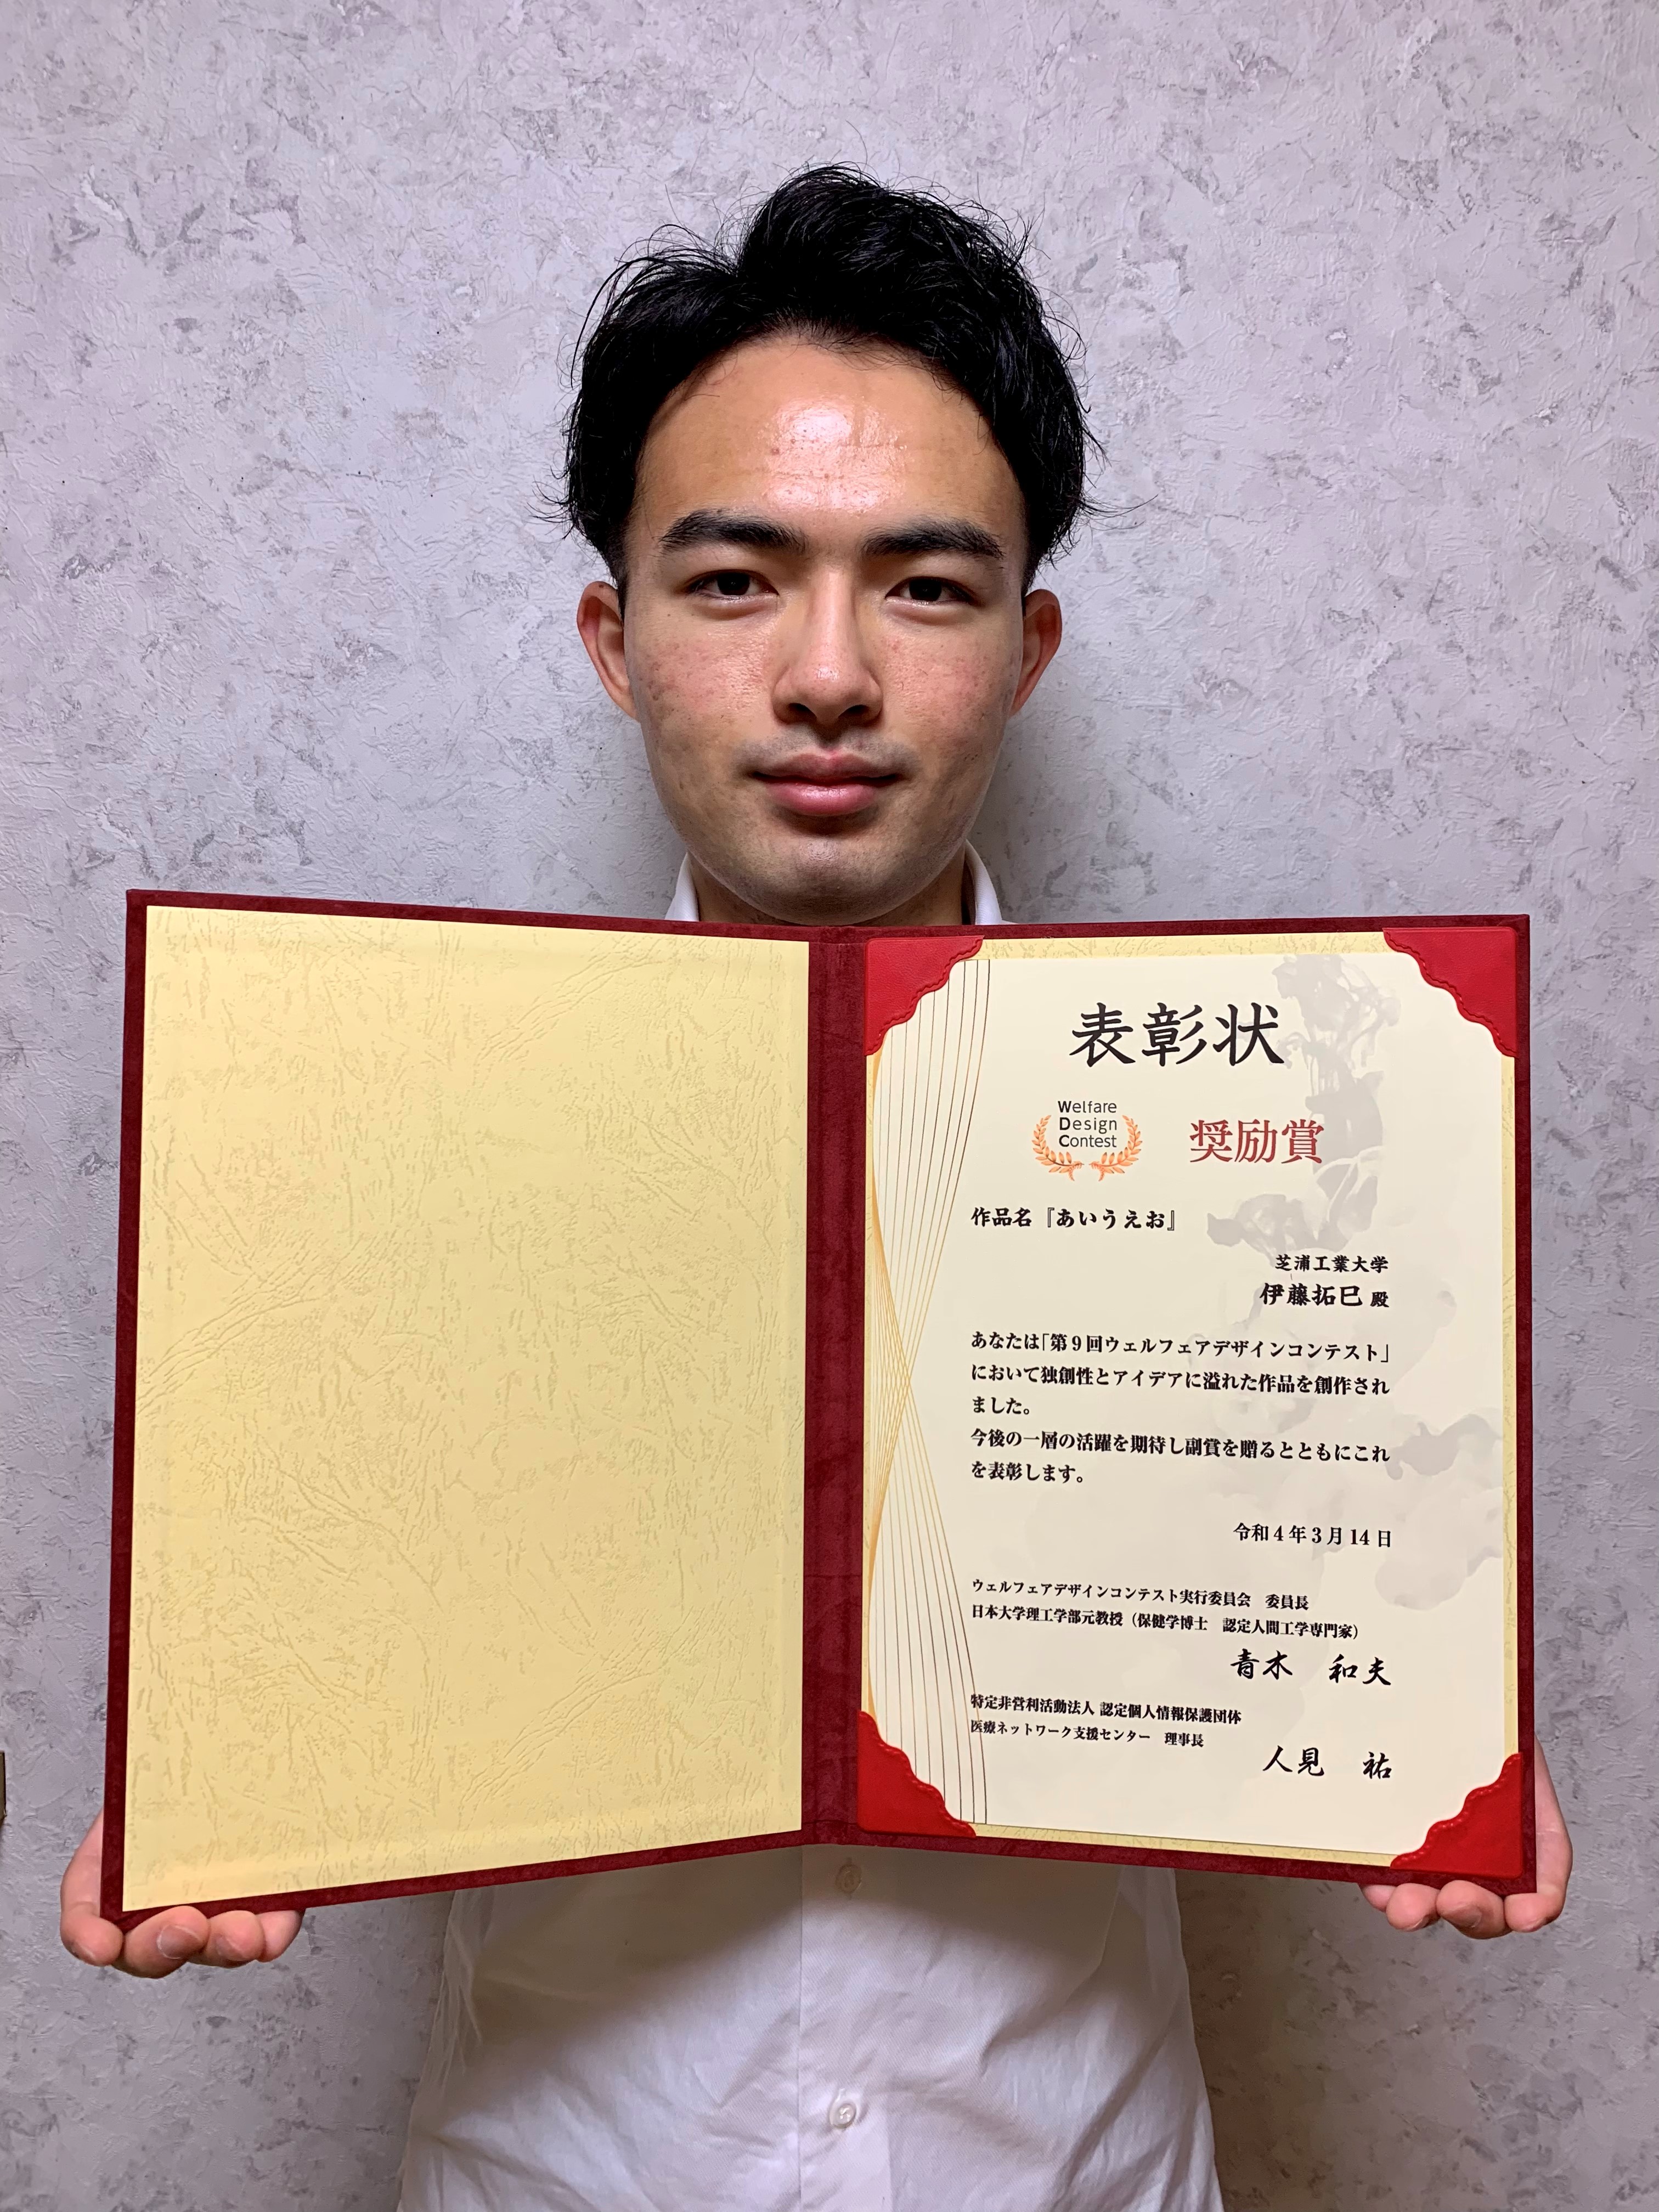 表彰状
Welfare
Design
Contest
奨励賞
作品名『あいうえお』
芝浦工業大学
伊藤拓巳 殿
あなたは「第9回ウェルフェアデザインコンテスト」
において独創性とアイデアに溢れた作品を創作され
ました。
今後の一層の活躍を期待し副賞を贈るとともにこれ
を表彰します。
令和4年3月14日
ウェルフェアデザインコンテスト実行委員会　委員長
日本大学理工学部元教授（保健学博士　認定人間工学専門家）
青木　和夫
特定非営利活動法人 認定個人情報保護団体
医療ネットワーク支援センター　理事長
人見　祐